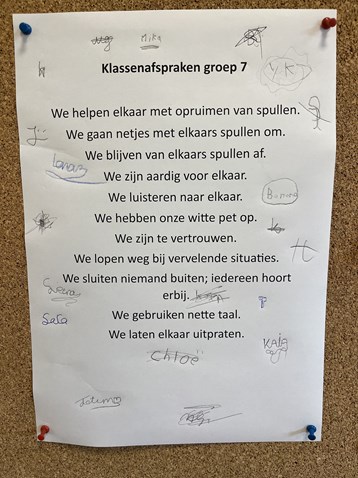 Mika
Klassenafspraken groep 7
YKJ
We helpen elkaar met opruimen van spullen.
We gaan netjes met elkaars spullen om.
We blijven van elkaars spullen af.
We zijn aardig voor elkaar.
We luisteren naar elkaar.
We hebben onze witte pet op.
We zijn te vertrouwen.
We lopen weg bij vervelende situaties.
We sluiten niemand buiten; iedereen hoort
erbij.
We gebruiken nette taal.
Sara
We laten elkaar uitpraten.
Kaja
Chloë